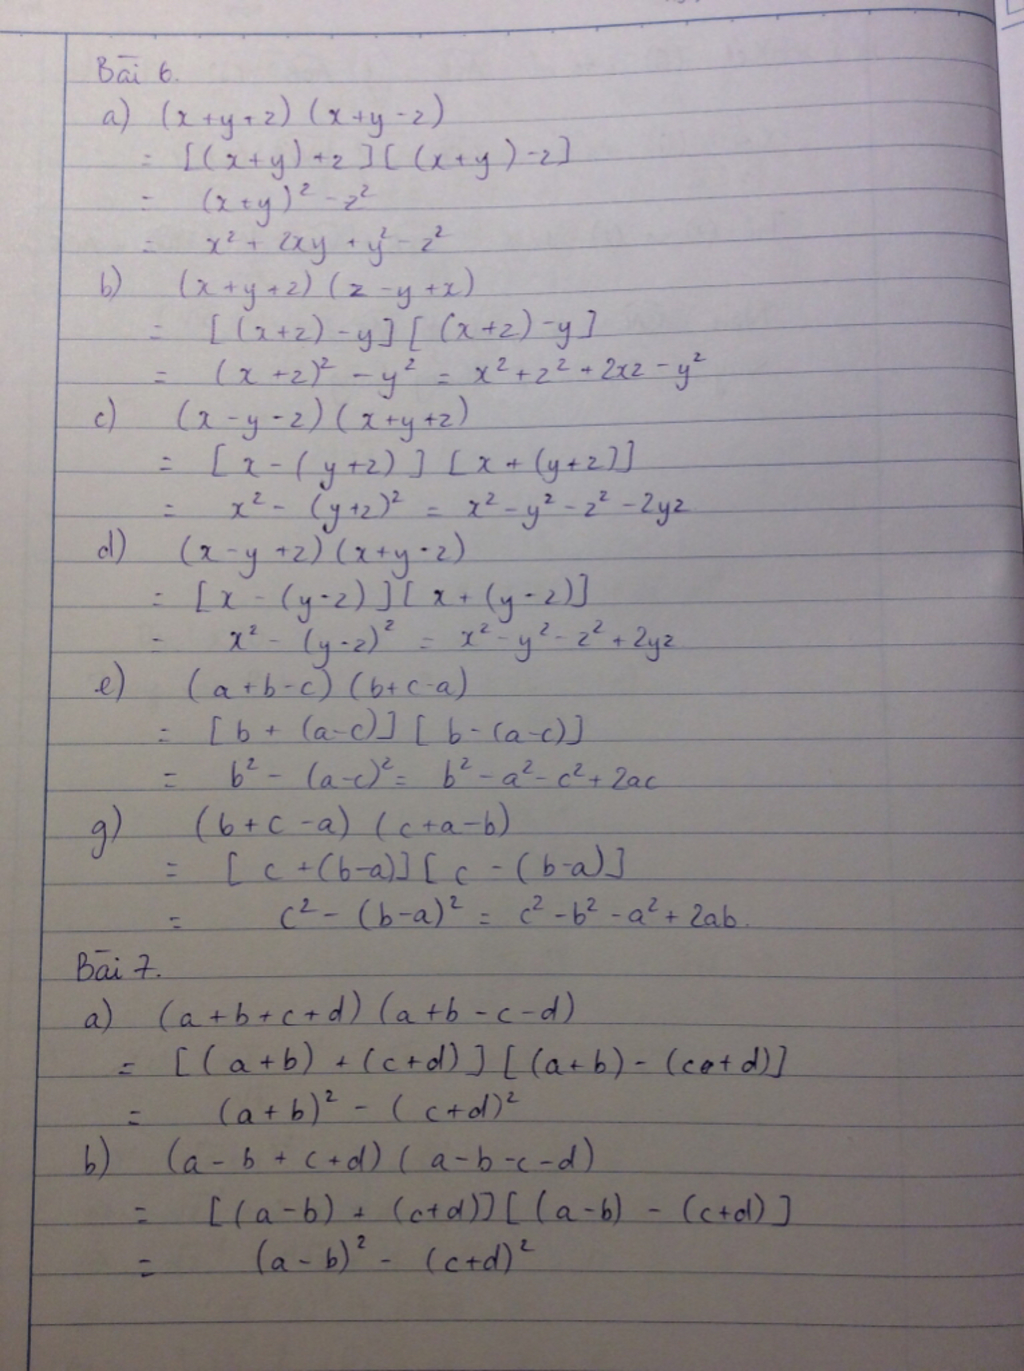 Bài 6.
a) (x+y+z) (x+y-z)
= [(x+y)+z][(x+y)-z]
= (x+y)² - z²
= x² + 2xy + y² - z²
b) (x+y+z) (z-y+x)
= [(x+z)-y][(x+z)-y]
= (x+z)² - y² = x² + z² + 2xz - y²
c) (x-y-z) (x+y+z)
= [x-(y+z)] [x+(y+z]]
= x² - (y+z)² = x² - y² - z² - 2yz
d) (x-y+z) (x+y-z)
= [x-(y-z)][x+(y-z)]
= x² - (y-z)² = x² - y² - z² + 2yz
e) (a+b-c) (b+c-a)
= [b+(a-c)] [b-(a-c)]
= b² - (a-c)² = b² - a² - c² + 2ac
g) (b+c-a) (c+a-b)
= [c+(b-a)][c-(b-a)]
= c² - (b-a)² = c² - b² - a² + 2ab.
Bài 7.
a) (a+b+c+d) (a+b-c-d)
= [(a+b)+(c+d)][(a+b)-(c+d)]
= (a+b)² - (c+d)²
b) (a-b+c+d) (a-b-c-d)
= [(a-b)+(c+d)][(a-b)-(c+d)]
= (a-b)² - (c+d)²